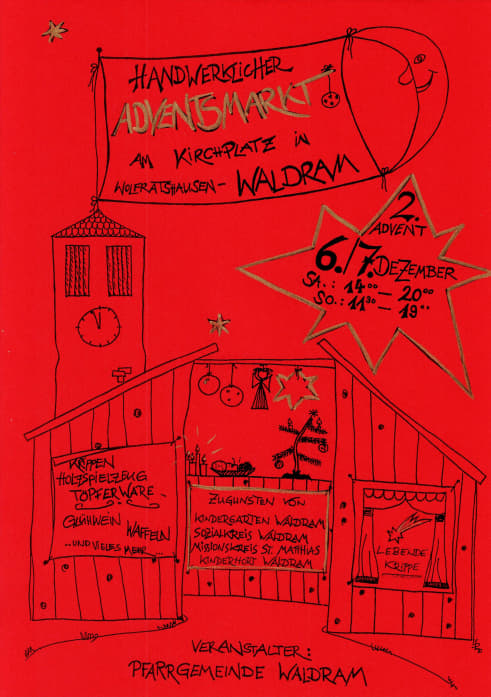 HANDWERKLICHER
ADVENTSMARKT
AM KIRCHPLATZ IN
WOLFRATSHAUSEN - WALDRAM
2.
ADVENT
6./7. DEZEMBER
SA.: 14⁰⁰ - 20⁰⁰
SO.: 11³⁰ - 19⁰⁰
KRIPPEN
HOLZSPIELZEUG
TÖPFERWARE
GLÜHWEIN
WAFFELN
...UND VIELES MEHR...
ZUGUNSTEN VON
KINDERGARTEN WALDRAM
SOZIALKREIS WALDRAM
MISSIONSKREIS ST. MATTHIAS
KINDERHORT WALDRAM
LEBENDE
KRIPPE
VERANSTALTER:
PFARRGEMEINDE WALDRAM